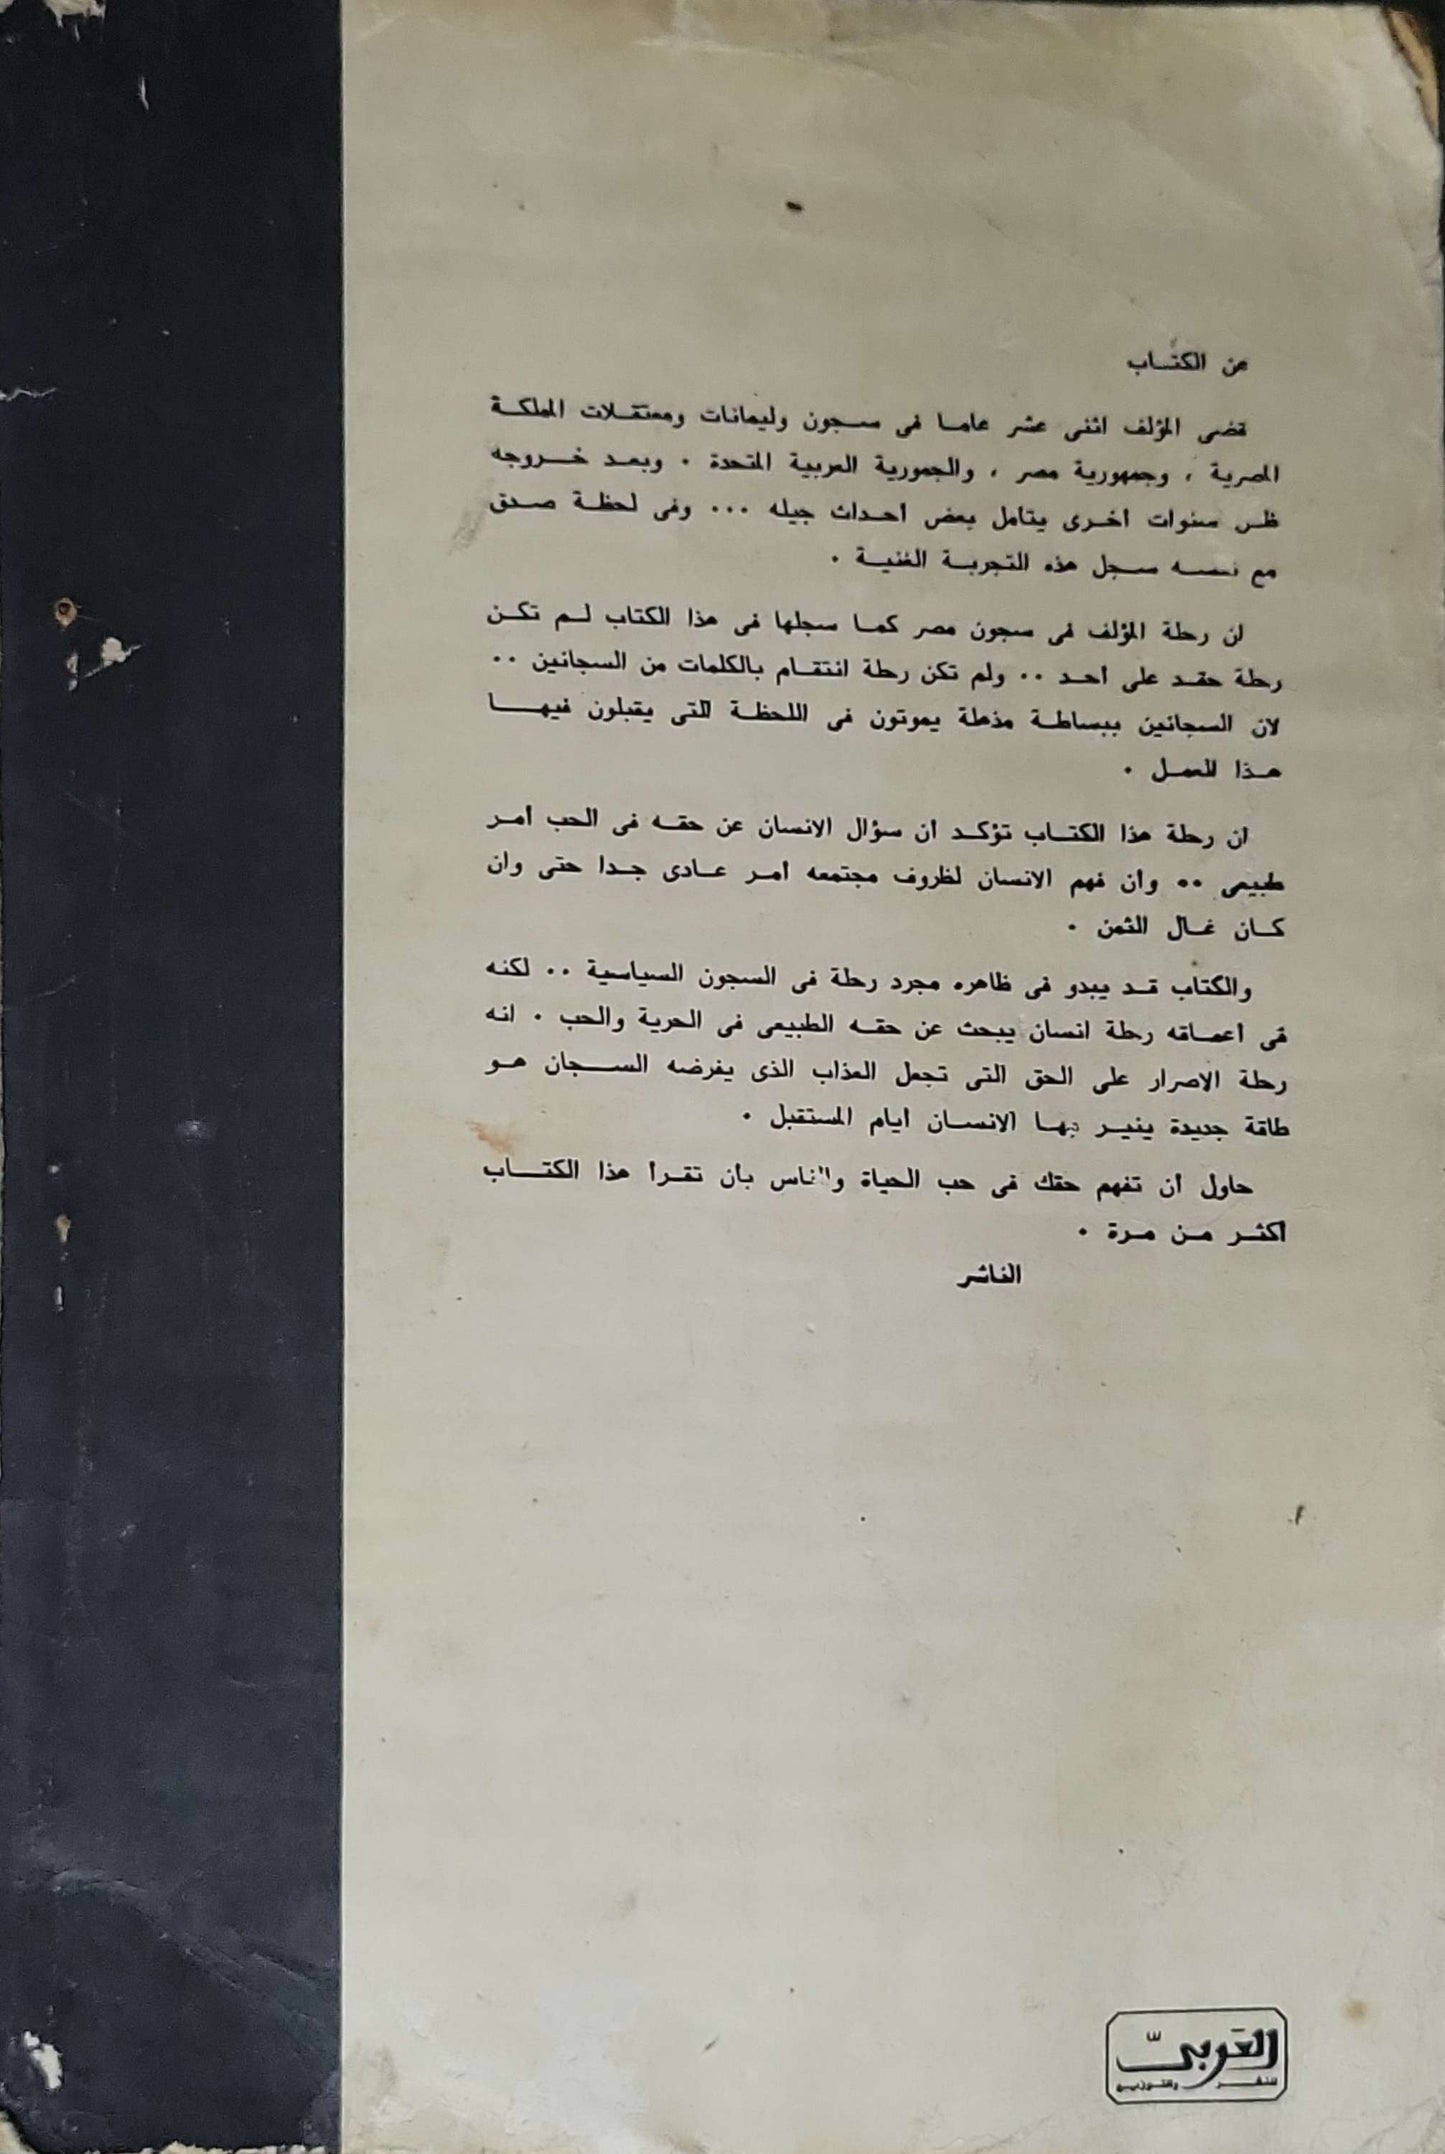 عن الكتاب
قضى المؤلف اثنى عشر عاما فى سجون وليمانات ومعتقلات المملكة
المصرية ، وجمهورية مصر ، والجمورية العربية المتحدة . وبعد خروجه
ظل سنوات أخرى يتأمل بعض أحداث جيله ... وفى لحظة صدق
مع نفسه سجل هذه التجربة الغنية .
ان رحلة المؤلف فى سجون مصر كما سجلها فى هذا الكتاب لم تكن
رحلة حقد على أحد .. ولم تكن رحلة انتقام بالكلمات من السجانين ..
لان السجانين ببساطة مذهلة يموتون فى اللحظة التى يقبلون فيها
هذا العمل .
ان رحلة هذا الكتاب تؤكد أن سؤال الانسان عن حقه فى الحب أمر
طبيعى .. وأن فهم الانسان لظروف مجتمعه أمر عادى جدا حتى وان
كان غال الثمن .
والكتاب قد يبدو فى ظاهره مجرد رحلة فى السجون السياسية .. لكنه
فى أعماقه رحلة انسان يبحث عن حقه الطبيعى فى الحرية والحب . انه
رحلة الاصرار على الحق التى تجعل العذاب الذى يفرضه السجان هو
طاقة جديدة ينير بها الانسان أيام المستقبل .
حاول أن تفهم حقك فى حب الحياة والناس بأن تقرأ هذا الكتاب
أكثر من مرة .
الناشر
العربي
للنشر والتوزيع